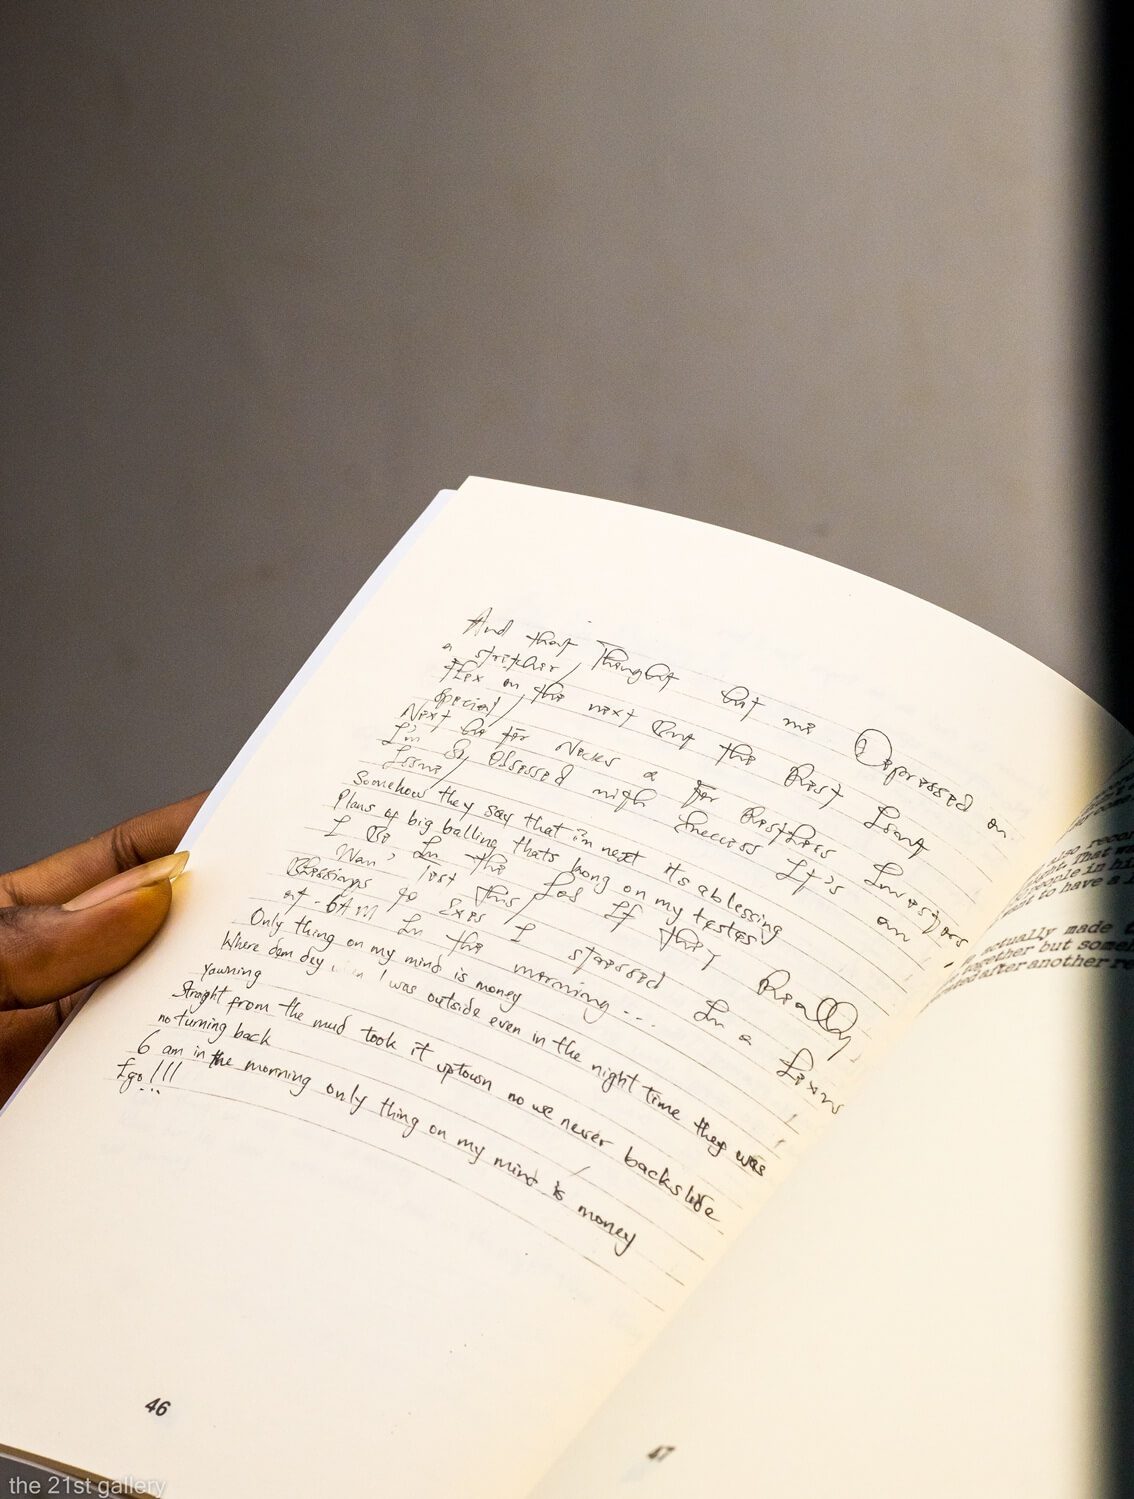 And that Thought hit me Depressed on
a stretcher,
Flex on the next But the Best Isnt
Special,
Next be for Necks a For Restless Investors
I'm So Obsessed with Success It's an
Issue,
Somehow they say that in next its a blessing
Plans of big balling thats bong on my testes
I Be In the Lab If they Really
Wan' Test This
Blessings to Exes I stressed In a
at - 6AM In the morning...
Only thing on my mind is money
Where dem dey when I was outside even in the night time they was
yawning
Straight from the mud took it uptown no we never backslide
no turning back
6 am in the morning only thing on my mind is money
I go!!!
46
47
also
right. That
people in hi
want to have a
actually made
together but
after another re
the 21st gallery